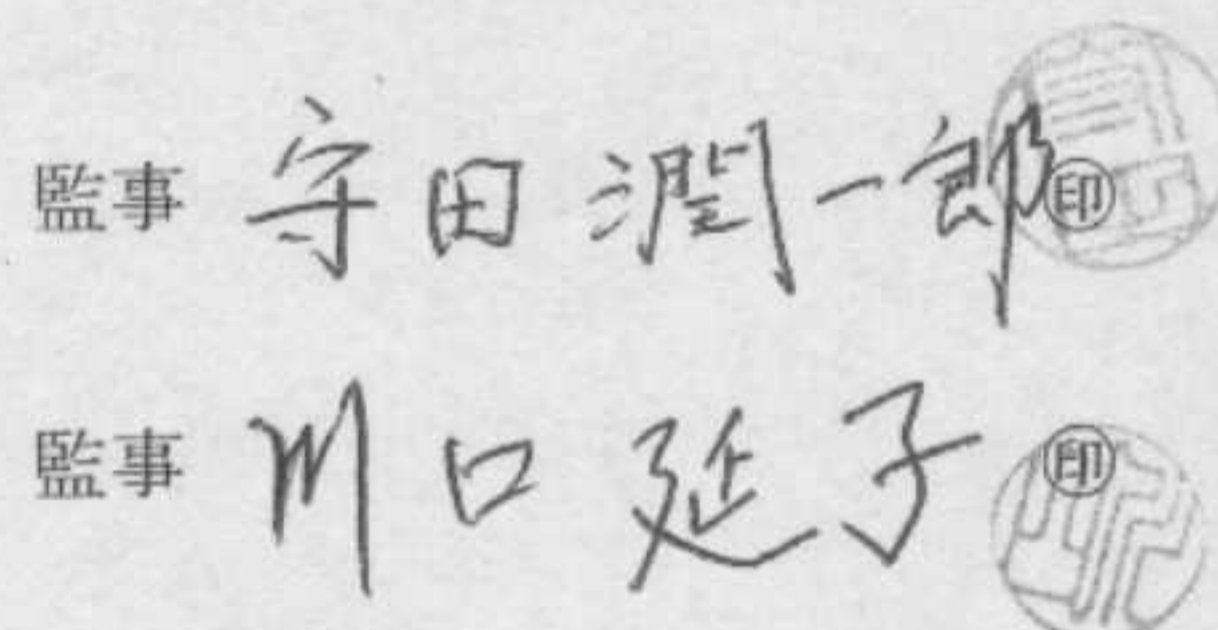 監事 守田潤一郎 ㊞
監事 川口延子 ㊞